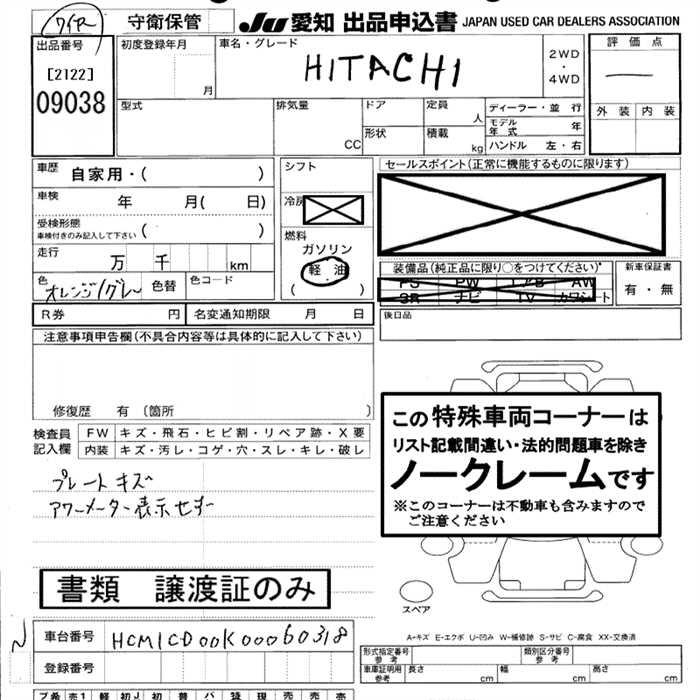 ワイR
守衛保管
JU 愛知 出品申込書 JAPAN USED CAR DEALERS ASSOCIATION
出品番号
[2122]
09038
初度登録年月
月
車名・グレード
HITACHI
2WD
・
4WD
評価点
外装 内装
型式
排気量
CC
ドア
形状
定員
人
積載
kg
ディーラー・並行
モデル年式 年
ハンドル 左・右
車歴
自家用・( )
車検 年 月( 日)
受検形態
車検付きのみ記入して下さい ( )
走行 万 千 km
色 オレンジ/グレー 色替 色コード
R券 円 名変通知期限 月 日
シフト
冷房
燃料
ガソリン
軽油
( )
セールスポイント(正常に機能するものに限ります)
装備品(純正品に限り○をつけてください)
PS PW エアB AW
SR ナビ TV カワシート
新車保証書
有・無
後日品
注意事項申告欄(不具合内容等は具体的に記入して下さい)
修復歴 有 (箇所 )
検査員記入欄
FW キズ・飛石・ヒビ割・リペア跡・X要
内装 キズ・汚レ・コゲ・穴・スレ・キレ・破レ
プレートキズ
アワーメーター表示せず
この特殊車両コーナーは
リスト記載間違い・法的問題車を除き
ノークレームです
※このコーナーは不動車も含みますので
ご注意ください
書類 譲渡証のみ
スペア
A-キズ E-エクボ U-凹み W-補修跡 S-サビ C-腐食 XX-交換済
N
車台番号 HCM1CD00K00060318
登録番号
形式指定番号
参考
類別区分番号
参考
車庫証明用
参考
長さ cm 幅 cm 高さ cm